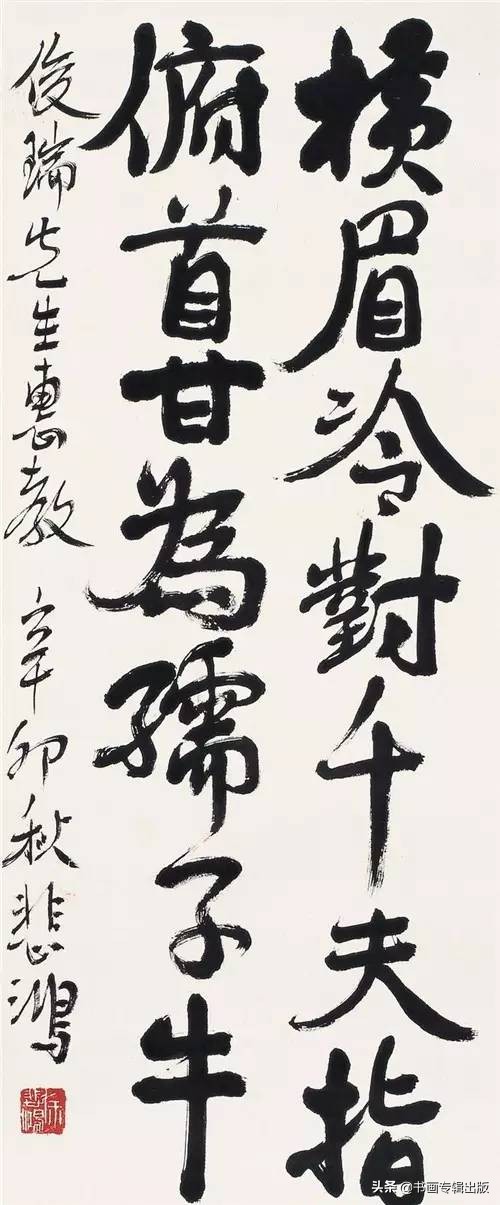 橫眉冷對千夫指
俯首甘為孺子牛
俊瑞先生惠教 辛卯秋 悲鴻
头条@书画专辑出版